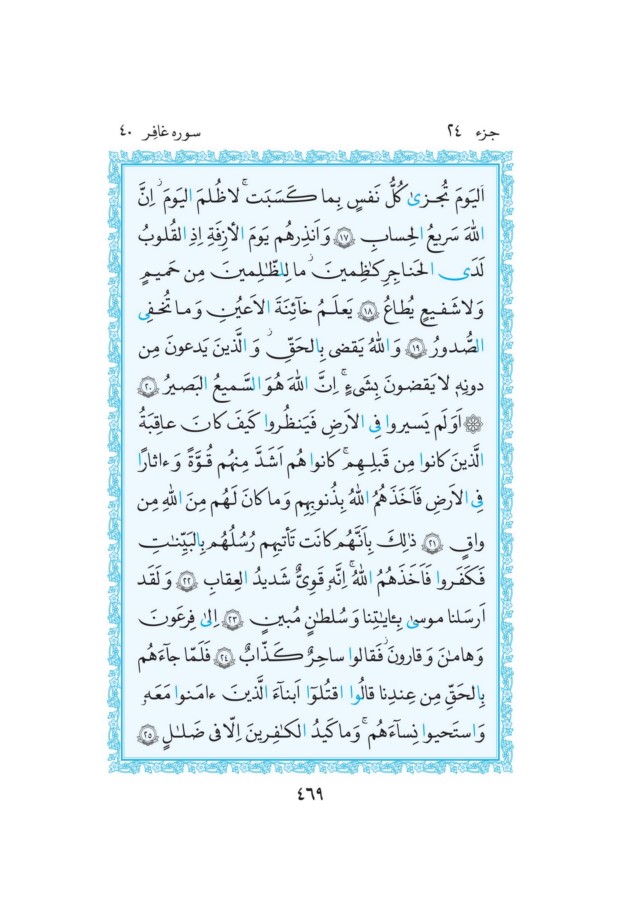 جزء ٢٤
سوره غافِر ٤٠
اَليَومَ تُجزىٰ كُلُّ نَفسٍ بِما كَسَبَت ۚ لا ظُلمَ اليَومَ ۚ اِنَّ
اللهَ سَريعُ الحِسابِ ﴿١٧﴾ وَ اَنذِرهُم يَومَ الأزِفَةِ اِذِ القُلوبُ
لَدَى الحَناجِرِ كٰظِمينَ ۚ ما لِلظّٰلِمينَ مِن حَميمٍ
وَلا شَفيعٍ يُطاعُ ﴿١٨﴾ يَعلَمُ خآئِنَةَ الاَعيُنِ وَ ما تُخفِى
الصُّدورُ ﴿١٩﴾ وَ اللهُ يَقضى بِالحَقِّ ۖ وَ الَّذينَ يَدعونَ مِن
دونِهٖ لا يَقضونَ بِشَىءٍ ۗ اِنَّ اللهَ هُوَ السَّميعُ البَصيرُ ﴿٢٠﴾
۞ اَوَلَم يَسيروا فِى الاَرضِ فَيَنظُروا كَيفَ كانَ عاقِبَةُ
الَّذينَ كانوا مِن قَبلِهِم ۚ كانوا هُم اَشَدَّ مِنهُم قُوَّةً وَ ءاثارًا
فِى الاَرضِ فَاَخَذَهُمُ اللهُ بِذُنوبِهِم وَ ما كانَ لَهُم مِنَ اللهِ مِن
واقٍ ﴿٢١﴾ ذٰلِكَ بِاَنَّهُم كانَت تَأتيهِم رُسُلُهُم بِالبَيِّنٰتِ
فَكَفَروا فَاَخَذَهُمُ اللهُ ۚ اِنَّهٗ قَوِىٌّ شَديدُ العِقابِ ﴿٢٢﴾ وَ لَقَد
اَرسَلنا موسىٰ بِـٔايٰتِنا وَ سُلطٰنٍ مُبينٍ ﴿٢٣﴾ اِلىٰ فِرعَونَ
وَ هامٰنَ وَ قارونَ فَقالوا ساحِرٌ كَذّابٌ ﴿٢٤﴾ فَلَمّا جآءَهُم
بِالحَقِّ مِن عِندِنا قالُوا اقتُلوٓا اَبنآءَ الَّذينَ ءامَنوا مَعَهٗ
وَ استَحيوا نِسآءَهُم ۚ وَ ما كَيدُ الكٰفِرينَ اِلّا فى ضَلٰلٍ ﴿٢٥﴾
٤٦٩